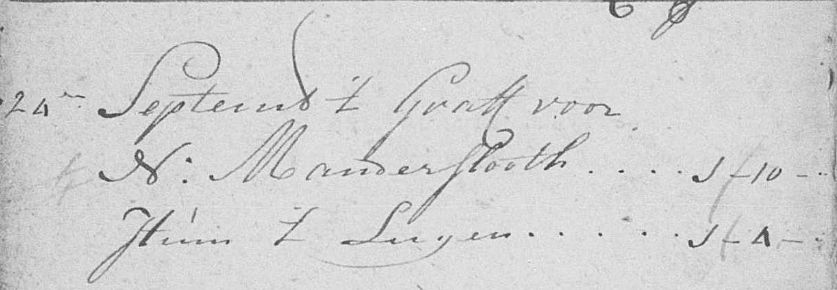 24en Septemb 't Graff voor
N: Manderslooth . . . . . 1 f 10 -
Item 't Luyen . . . . . . 1 f 4 -